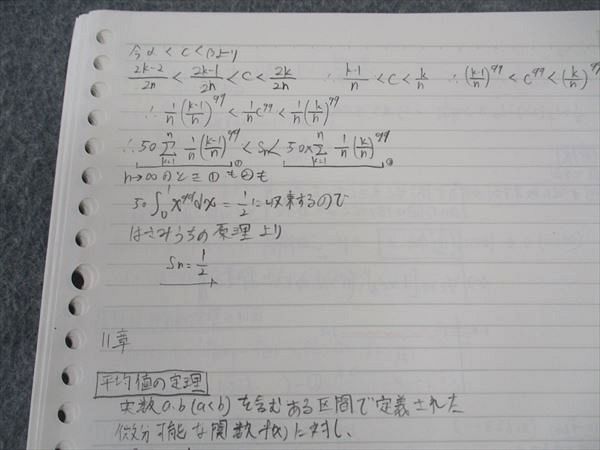 今 α < c < β より
2k-2/2n < 2k-1/2n < c < 2k/2n ∴ k-1/n < c < k/n ∴ (k-1/n)^99 < c^99 < (k/n)^99
∴ 1/n (k-1/n)^99 < 1/n c^99 < 1/n (k/n)^99
∴ 50 Σ_{k=1}^{n} 1/n (k-1/n)^99 < Sn < 50× Σ_{k=1}^{n} 1/n (k/n)^99
① ②
n→∞ のとき ① も ② も
50 ∫_0^1 x^99 dx = 1/2 に収束するので
はさみうちの原理より
Sn = 1/2
11章
平均値の定理
実数 a.b (a<b) を含むある区間で定義された
微分可能な関数 f(x) に対し、